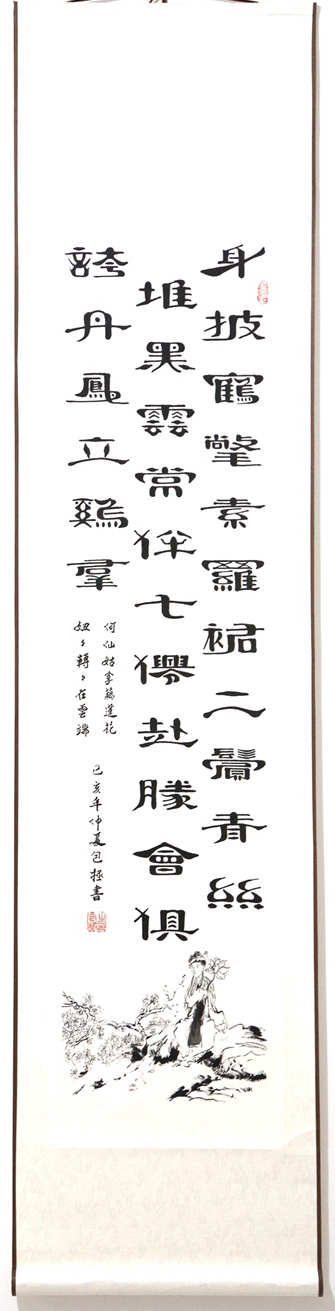 身披鶴氅素羅裙二鬢青絲
堆黑雲常伴七僊赴勝會俱
誇丹鳳立鷄羣
何仙姑拿藕蓮花
妞々轉々在雲端
己亥年仲夏包極書